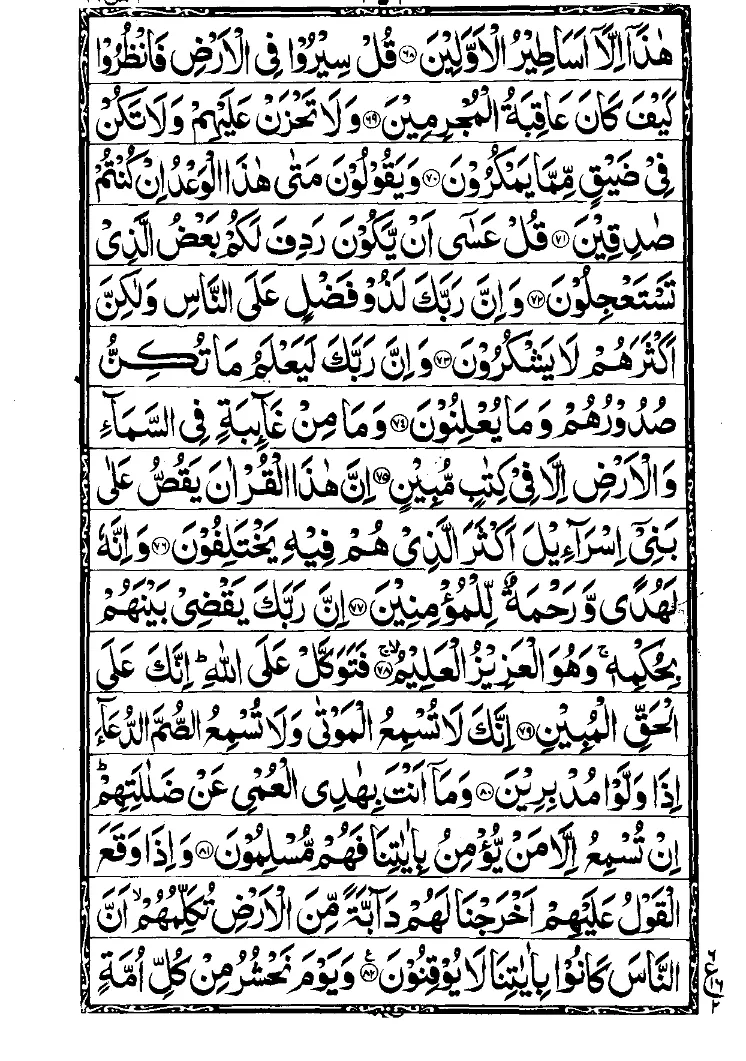 هٰذَاۤ اِلَّاۤ اَسَاطِيْرُ الْاَوَّلِيْنَ ﴿۶۸﴾ قُلْ سِيْرُوْا فِى الْاَرْضِ فَانْظُرُوْا
كَيْفَ كَانَ عَاقِبَةُ الْمُجْرِمِيْنَ ﴿۶۹﴾ وَلَا تَحْزَنْ عَلَيْهِمْ وَلَا تَكُنْ
فِىْ ضَيْقٍ مِّمَّا يَمْكُرُوْنَ ﴿۷۰﴾ وَيَقُوْلُوْنَ مَتٰى هٰذَا الْوَعْدُ اِنْ كُنْتُمْ
صٰدِقِيْنَ ﴿۷۱﴾ قُلْ عَسٰۤى اَنْ يَّكُوْنَ رَدِفَ لَكُمْ بَعْضُ الَّذِىْ
تَسْتَعْجِلُوْنَ ﴿۷۲﴾ وَاِنَّ رَبَّكَ لَذُوْ فَضْلٍ عَلَى النَّاسِ وَلٰكِنَّ
اَكْثَرَهُمْ لَا يَشْكُرُوْنَ ﴿۷۳﴾ وَاِنَّ رَبَّكَ لَيَعْلَمُ مَا تُكِنُّ
صُدُوْرُهُمْ وَمَا يُعْلِنُوْنَ ﴿۷۴﴾ وَمَا مِنْ غَآئِبَةٍ فِى السَّمَآءِ
وَالْاَرْضِ اِلَّا فِىْ كِتٰبٍ مُّبِيْنٍ ﴿۷۵﴾ اِنَّ هٰذَا الْقُرْاٰنَ يَقُصُّ عَلٰى
بَنِىْۤ اِسْرَآءِيْلَ اَكْثَرَ الَّذِىْ هُمْ فِيْهِ يَخْتَلِفُوْنَ ﴿۷۶﴾ وَاِنَّهٗ
لَهُدًى وَّرَحْمَةٌ لِّلْمُؤْمِنِيْنَ ﴿۷۷﴾ اِنَّ رَبَّكَ يَقْضِىْ بَيْنَهُمْ
بِحُكْمِهٖ ۚ وَهُوَ الْعَزِيْزُ الْعَلِيْمُ ﴿۷۸﴾ فَتَوَكَّلْ عَلَى اللّٰهِ ؕ اِنَّكَ عَلَى
الْحَقِّ الْمُبِيْنِ ﴿۷۹﴾ اِنَّكَ لَا تُسْمِعُ الْمَوْتٰى وَلَا تُسْمِعُ الصُّمَّ الدُّعَآءَ
اِذَا وَلَّوْا مُدْبِرِيْنَ ﴿۸۰﴾ وَمَاۤ اَنْتَ بِهٰدِى الْعُمْىِ عَنْ ضَلٰلَتِهِمْ ؕ
اِنْ تُسْمِعُ اِلَّا مَنْ يُّؤْمِنُ بِاٰيٰتِنَا فَهُمْ مُّسْلِمُوْنَ ﴿۸۱﴾ وَاِذَا وَقَعَ
الْقَوْلُ عَلَيْهِمْ اَخْرَجْنَا لَهُمْ دَآبَّةً مِّنَ الْاَرْضِ تُكَلِّمُهُمْ ۙ اَنَّ
النَّاسَ كَانُوْا بِاٰيٰتِنَا لَا يُوْقِنُوْنَ ﴿۸۲﴾ وَيَوْمَ نَحْشُرُ مِنْ كُلِّ اُمَّةٍ